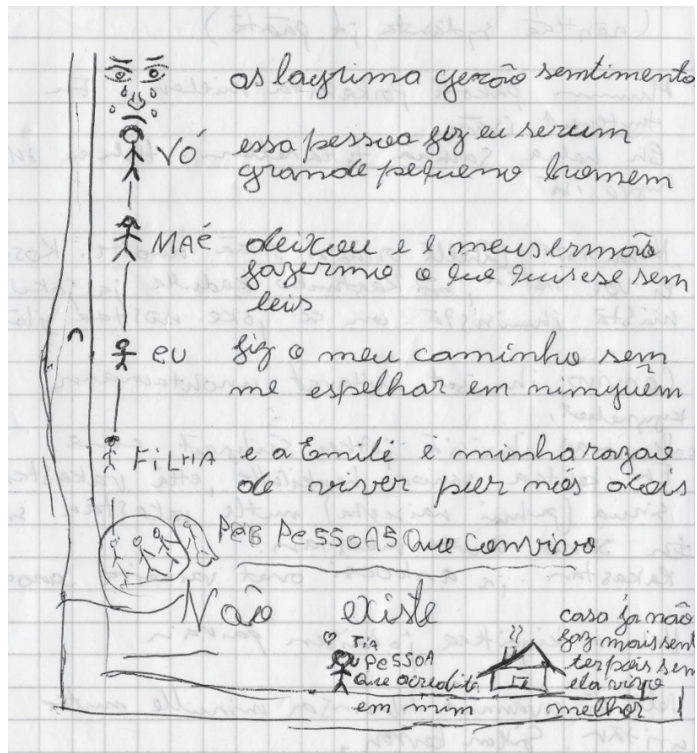 as lagrima gerão sentimento
VÓ essa pessoa fiz eu ser um
grande pequeno homem
MAÉ deixou e é meus ermão
fazermo o que quisese sem
leis
eu fiz o meu caminho sem
me espelhar em ninguém
FiLHA e a Emili é minha razao
de viver por nós dois
PeSSOAS Que convivo
Não existe
TiA
PeSSOA
Que acredita
em mim
casa ja não
faz mais sen
ter pois sem
ela vivo
melhor